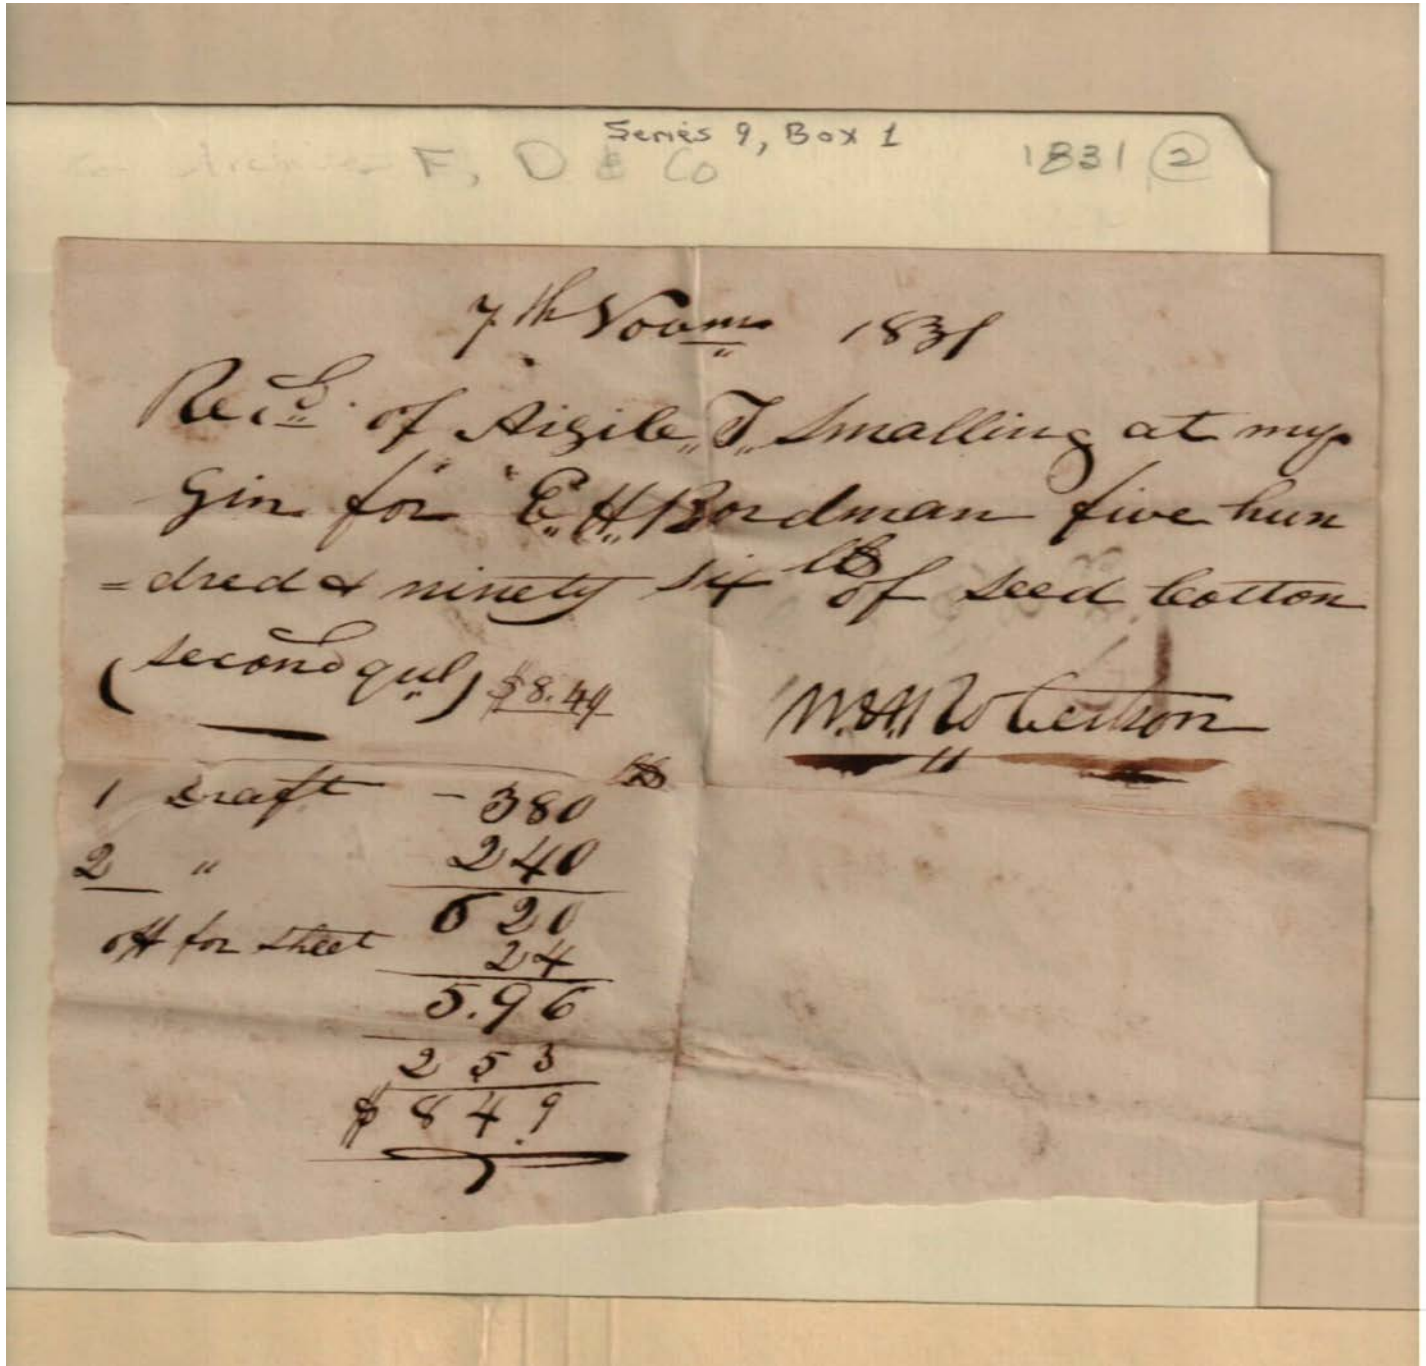 Series 9, Box 1
F, D & Co
1831 2
7th Novm 1831
Recd. of Aigile T Smalling at my
Gin for E. H. Bordman five hun
=dred & ninety six lbs of seed Cotton
(second qul) $8.49
W.H. Robertson
1 Draft - 380 lbs
2 " 240
620
off for sheet 24
5.96
2 5 3
$ 8 4.9